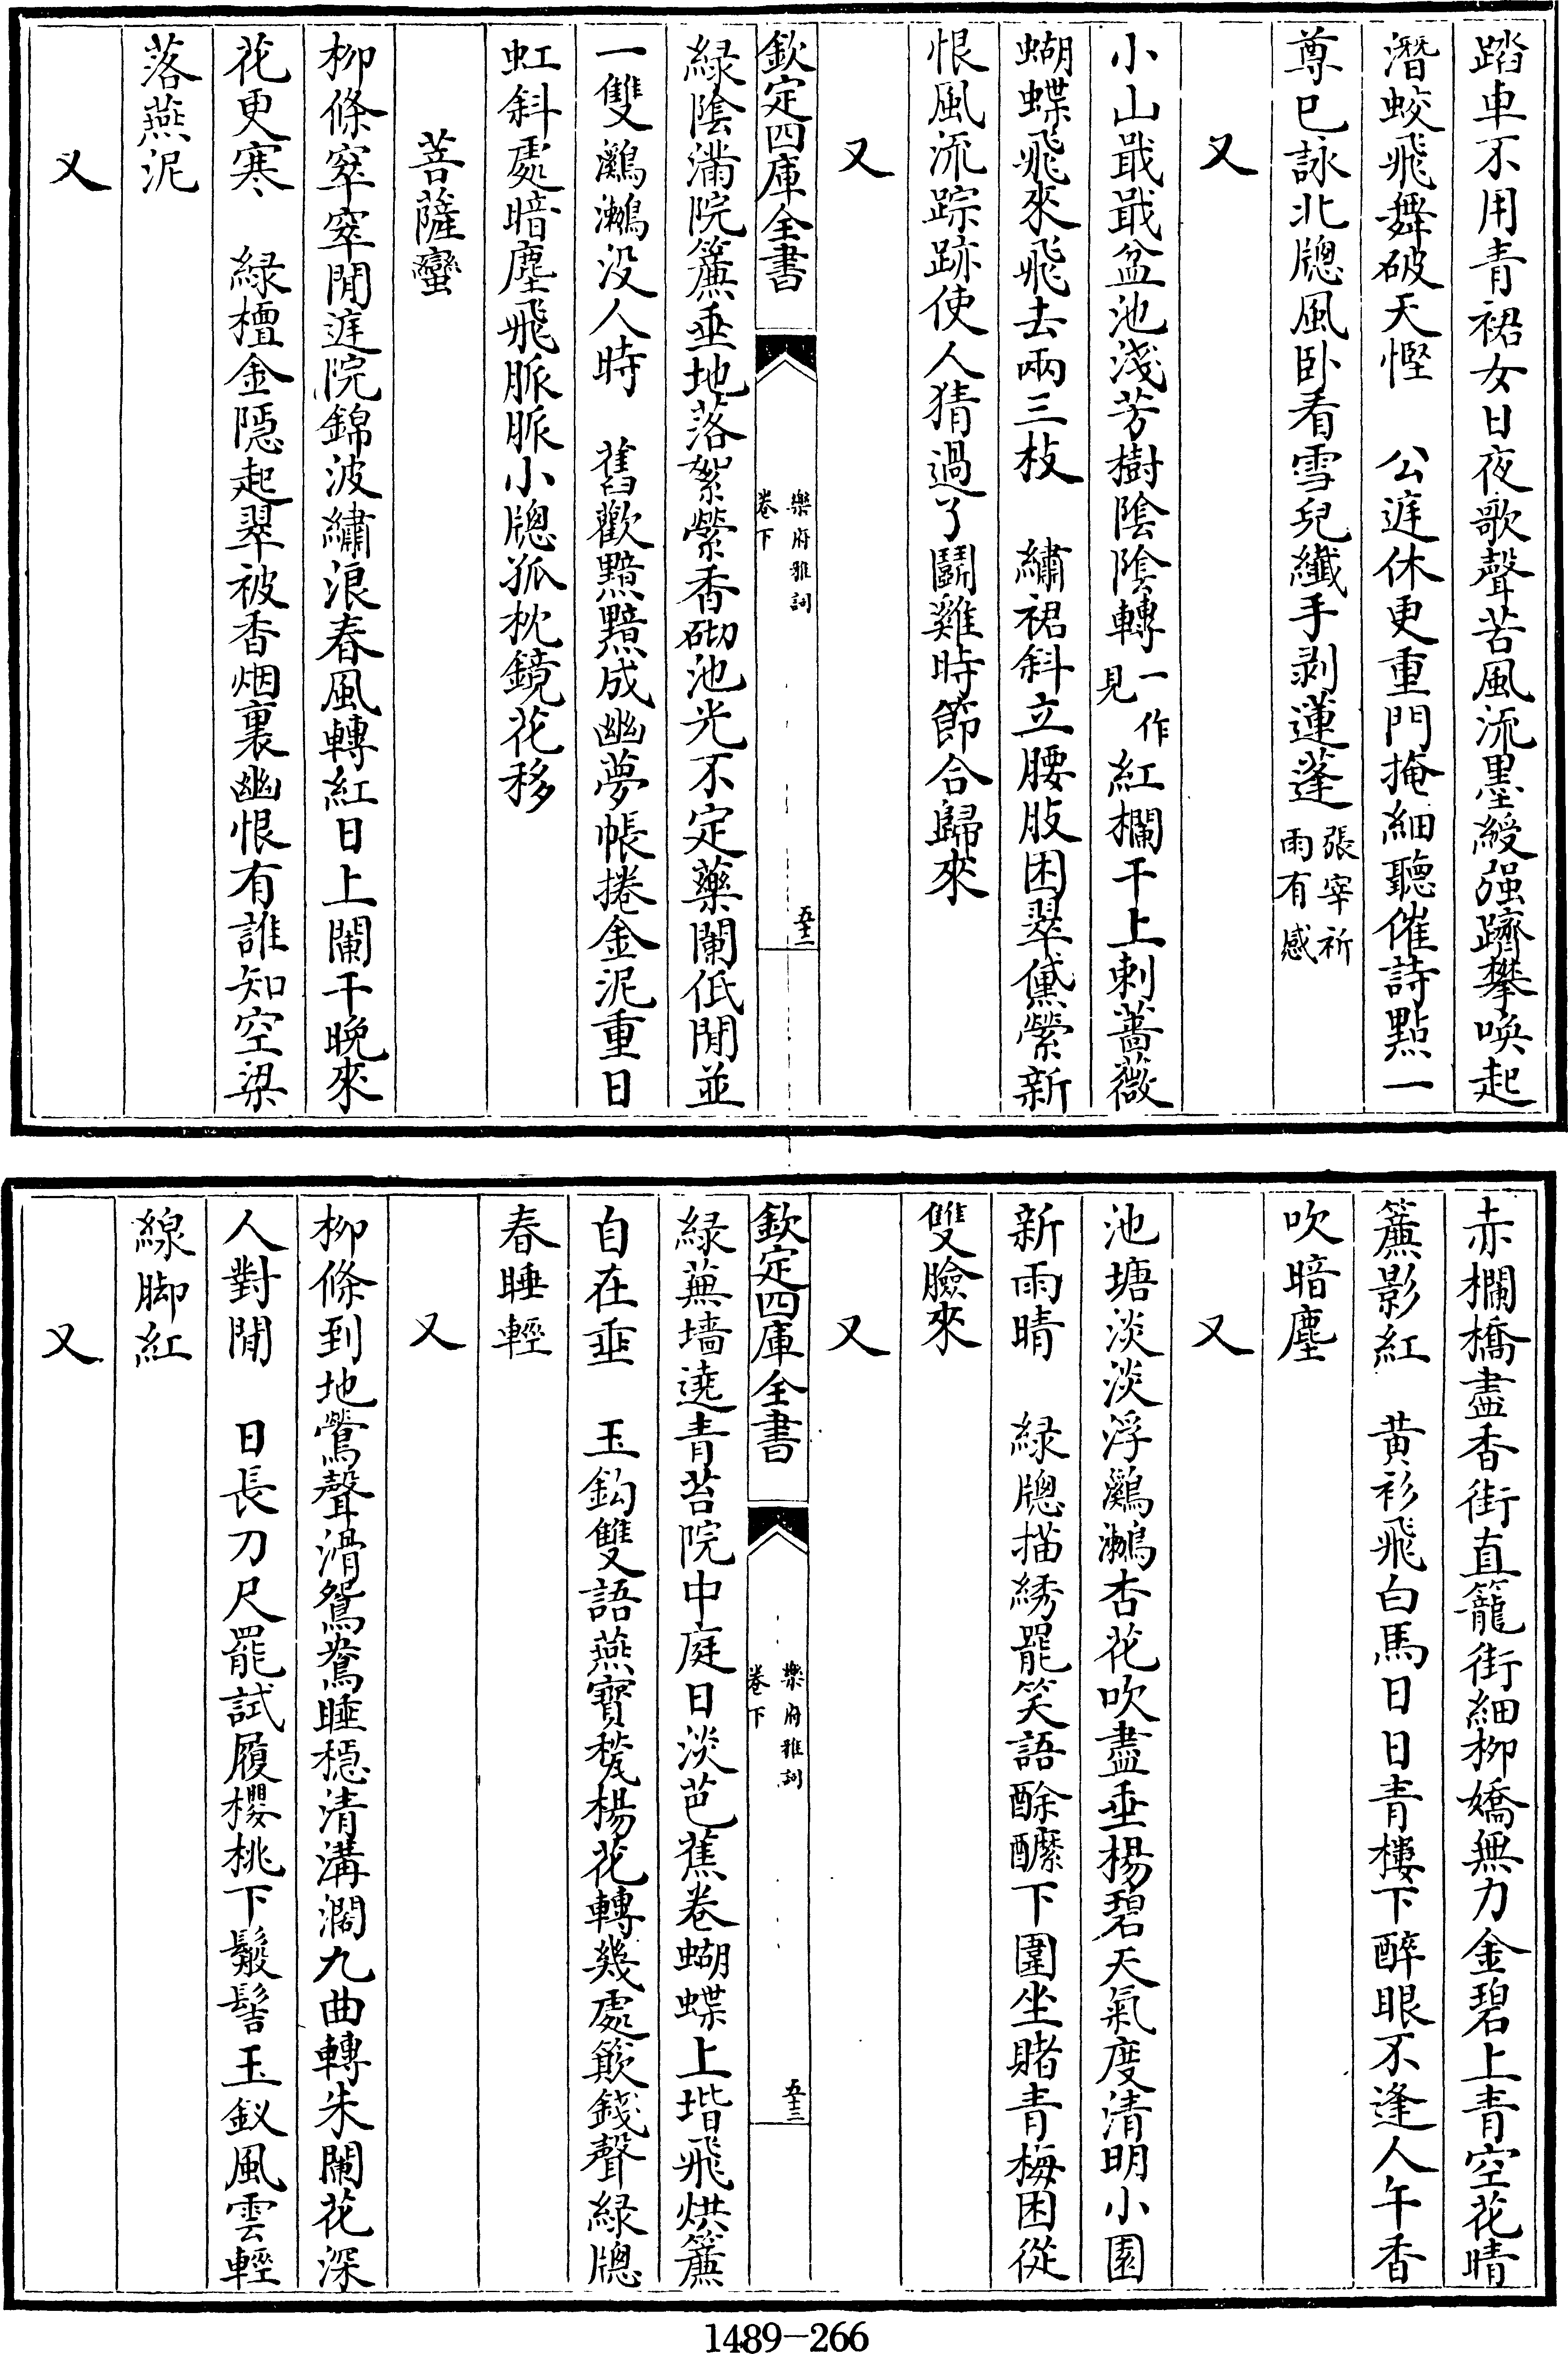 踏車不用青裙女日夜歌聲苦風流墨綬强躋攀喚起
潛蛟飛舞破天慳　公庭休更重門掩細聽催詩㸃一
尊已詠北牕風卧看雪兒纎手剥蓮蓬張宰祈雨有感
又
小山戢戢盆池淺芳樹隂隂轉一作見紅欄干上刺薔薇
蝴蝶飛來飛去兩三枝　繡裙斜立腰肢困翠黛縈新
恨風流踪跡使人猜過了鬬雞時節合歸來
又
欽定四庫全書
樂府雅詞
卷下
五十二
緑隂滿院簾垂地落絮縈香砌池光不定藥闌低閒並
一雙鸂鶒没人時　舊歡黯黯成幽夢帳捲金泥重日
虹斜處暗塵飛脈脈小牕孤枕鏡花移
菩薩蠻
柳條窣窣閒庭院錦波繡浪春風轉紅日上闌干晚來
花更寒　緑檀金隱起翠被香烟裏幽恨有誰知空梁
落燕泥
又
赤欄橋盡香街直籠街細柳嬌無力金碧上青空花晴
簾影紅　黄衫飛白馬日日青樓下醉眼不逢人午香
吹暗塵
又
池塘淡淡浮鸂鶒杏花吹盡垂楊碧天氣度清明小園
新雨晴　緑牕描綉罷笑語酴醾下圍坐賭青梅困從
雙臉來
又
欽定四庫全書
樂府雅詞
卷下
五十三
緑蕪墻遶青苔院中庭日淡芭蕉卷蝴蝶上堦飛烘簾
自在垂　玉鈎雙語燕寳甃楊花轉幾處簸錢聲緑牕
春睡輕
又
柳條到地鶯聲滑鴛鴦睡穏清溝濶九曲轉朱闌花深
人對閒　日長刀尺罷試履櫻桃下鬆髻玉釵風雲輕
線脚紅
又
1489-266